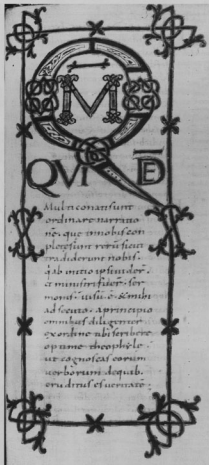 QUI
DE
Multi conati sunt
ordinare narratio
nē. que in nobis con
plete sunt rerū sicut
tradiderunt nobis.
q ab initio ipsi uider̄.
et ministri fuer̄ ser
monis. uisū ē & mihi
adsecuto. a principio
omnibus diligenter
ex ordine tibi scribere
optime theophile.
ut cognoscas eorum
uerborum de quib.
eruditus es ueritatē.